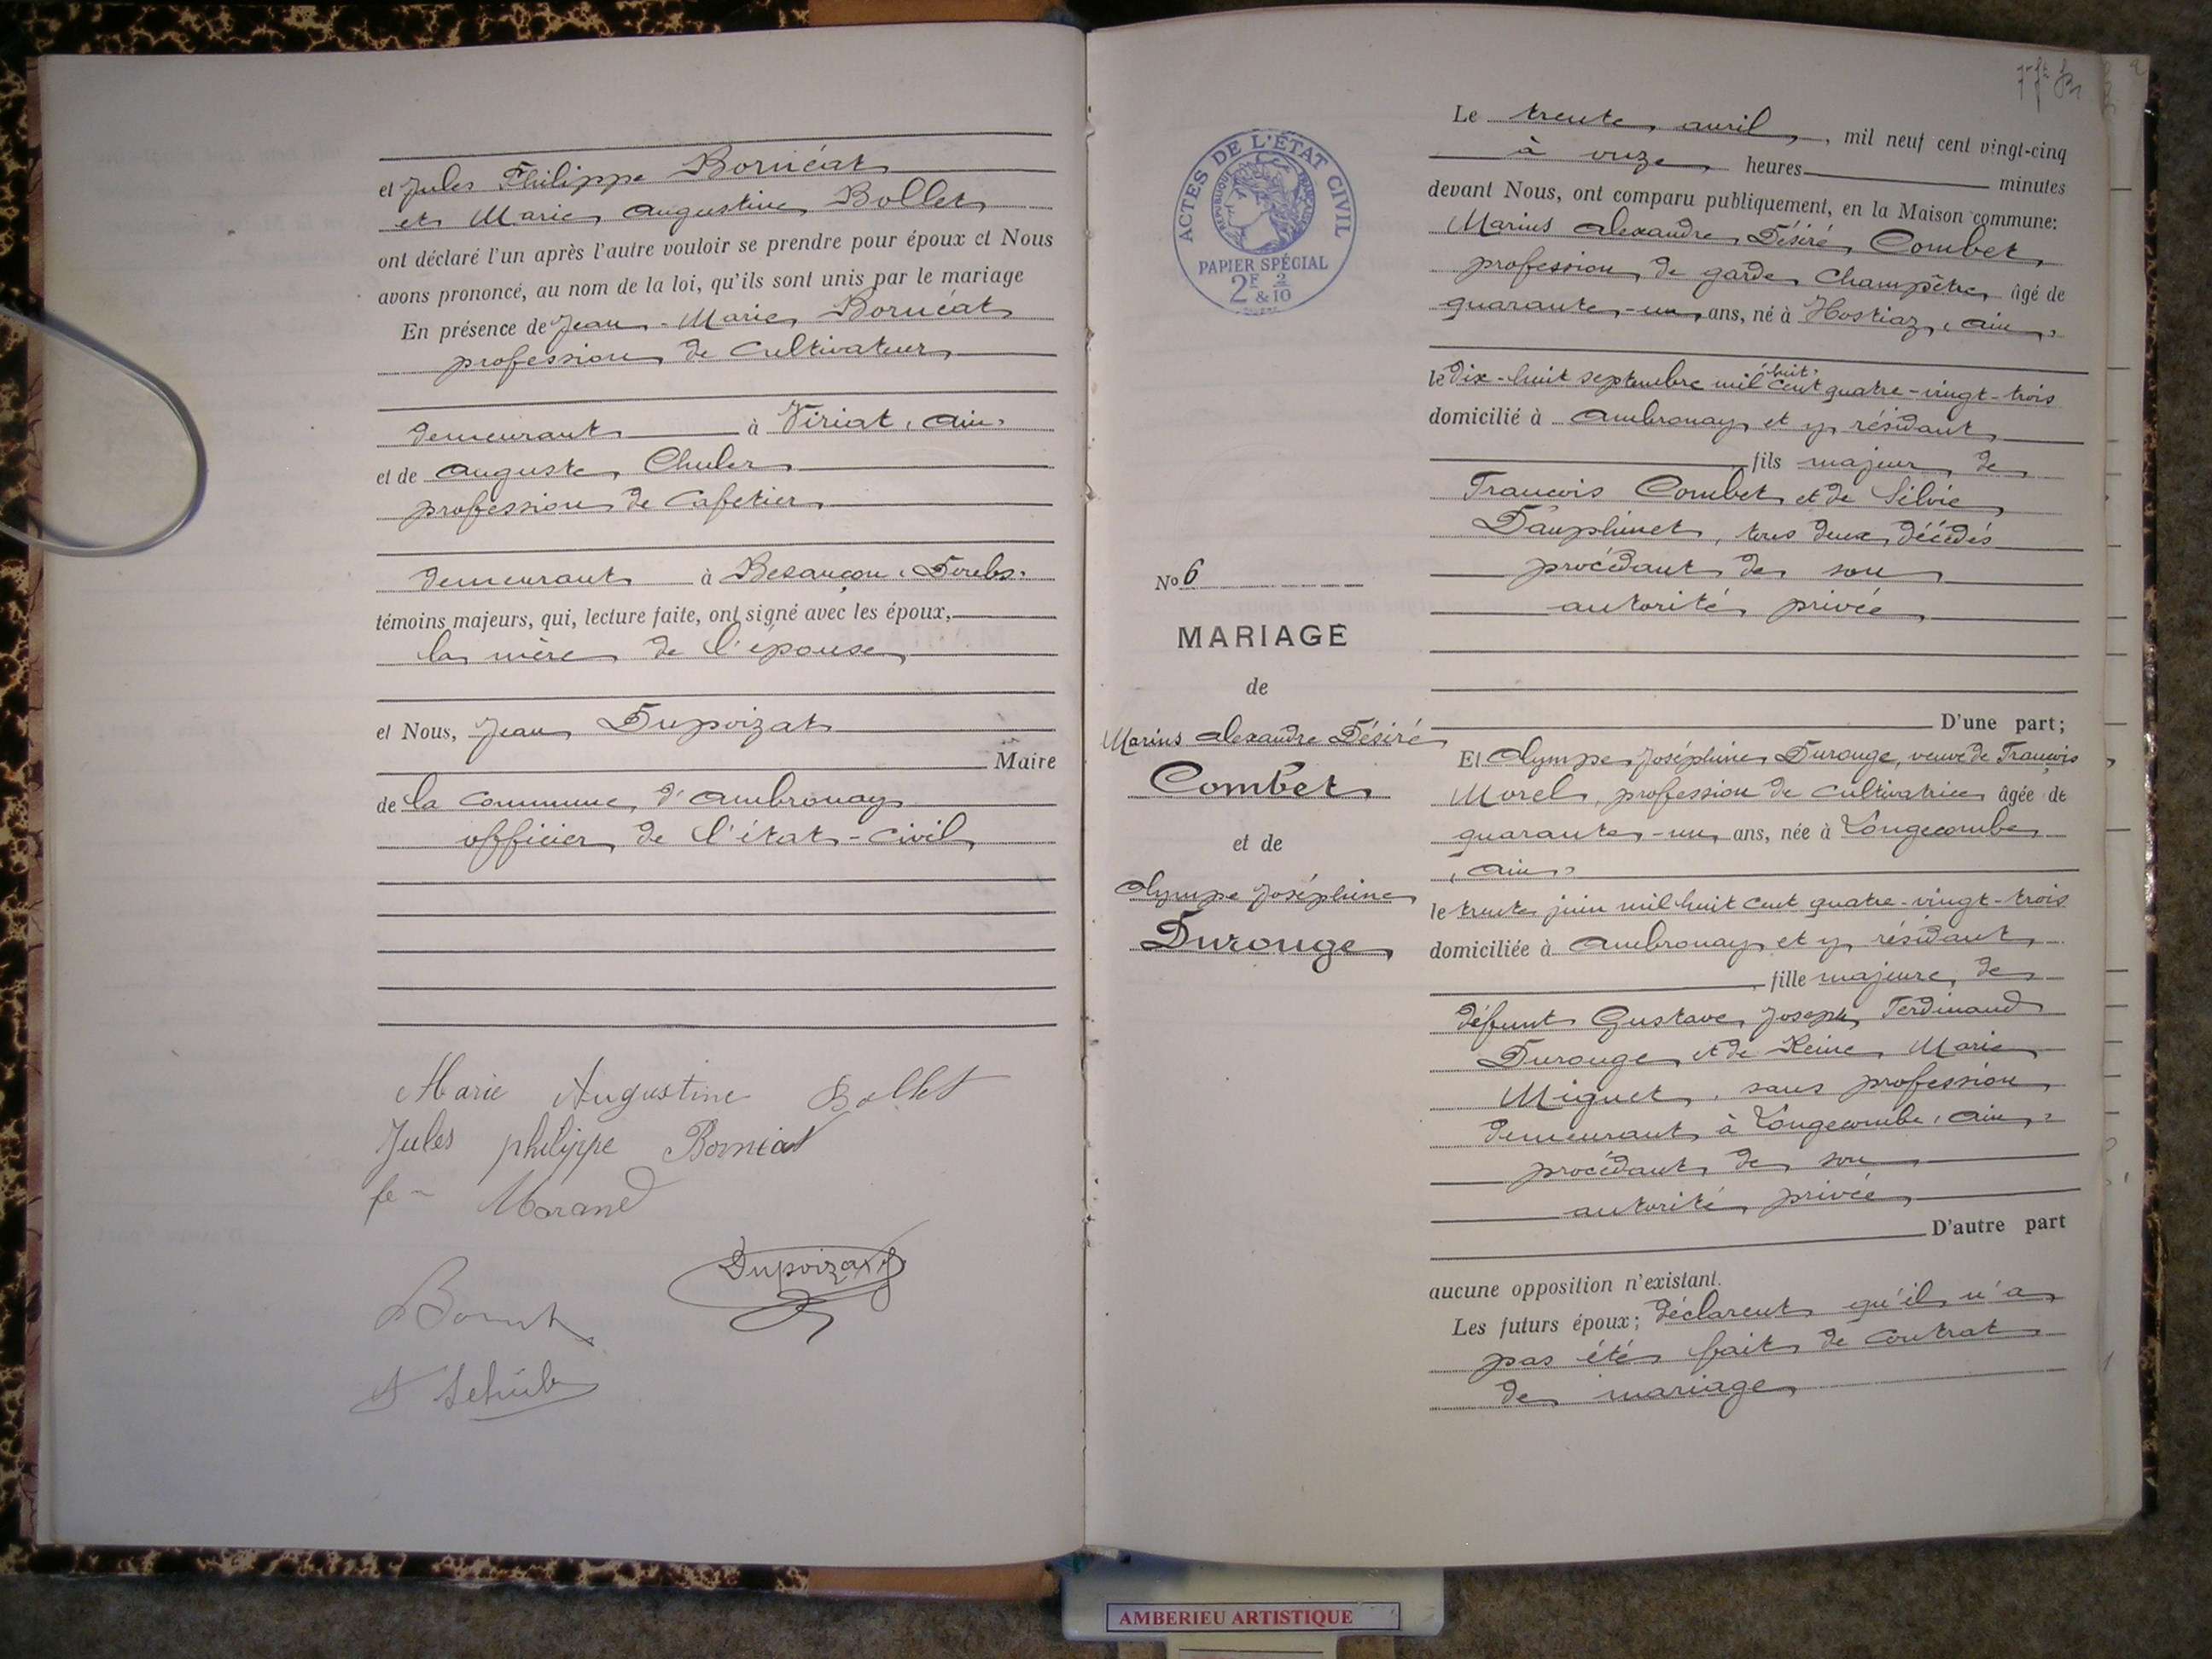 et Jules Philippe Bornéat
et Marie Augustine Bollet
ont déclaré l'un après l'autre vouloir se prendre pour époux et Nous
avons prononcé, au nom de la loi, qu'ils sont unis par le mariage
En présence de Jean-Marie Bornéat
profession de Cultivateur
demeurant à Viriat (Ain)
et de Auguste Chuler
profession de Cafetier
demeurant à Besançon (Doubs)
témoins majeurs, qui, lecture faite, ont signé avec les époux,
la mère de l'épouse
et Nous, Jean Dupoizat
Maire
de la Commune d'Ambronay
officier de l'état-civil
Marie Augustine Bollet
Jules philippe Borneat
fe Morand
Dupoizat
ACTES DE L'ÉTAT CIVIL
RÉPUBLIQUE FRANÇAISE
PAPIER SPÉCIAL
2F & 2/10
No 6
MARIAGE
de
Marius Alexandre Désiré
Combet
et de
Olympe Joséphine
Durouge
Le trente avril, mil neuf cent vingt-cinq
à onze heures minutes
devant Nous, ont comparu publiquement, en la Maison commune:
Marius Alexandre Désiré Combet
profession de garde Champêtre âgé de
quarante-un ans, né à Hostiaz (Ain)
le dix-huit septembre mil huit cent quatre-vingt-trois
domicilié à Ambronay et y résidant
fils majeur de
François Combet et de Silvie
Dauphinet, tous deux décédés
procédant de son
autorité privée
D'une part;
Et Olympe Joséphine Durouge, veuve de François
Morel, profession de Cultivatrice âgée de
quarante-un ans, née à Longecombe
(Ain)
le trente juin mil huit cent quatre-vingt-trois
domiciliée à Ambronay et y résidant
fille majeure de
défunt Gustave Joseph Ferdinand
Durouge et de Reine Marie
Miguet, sans profession
demeurant à Longecombe (Ain)
procédant de son
autorité privée
D'autre part
aucune opposition n'existant.
Les futurs époux; déclarent qu'il n'a
pas été fait de Contrat
de mariage
AMBERIEU ARTISTIQUE